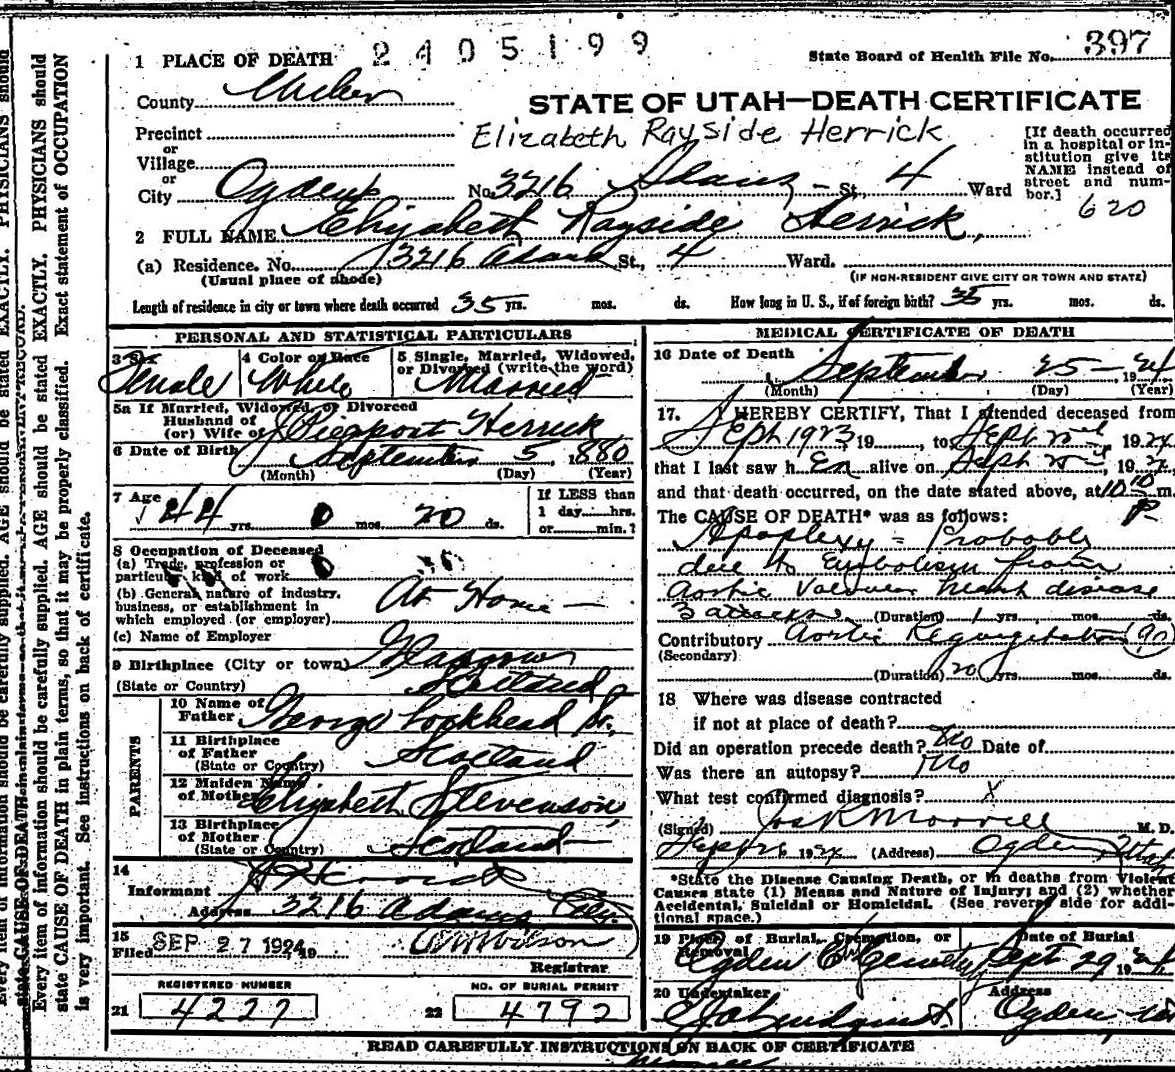 2405199
State Board of Health File No. 397
1 PLACE OF DEATH
County Weber
STATE OF UTAH—DEATH CERTIFICATE
Elizabeth Rayside Herrick
Precinct
or
Village
or
City Ogden No. 3216 Adams St, 4 Ward
[If death occurred
in a hospital or in-
stitution give its
NAME instead of
street and num-
ber.]
620
2 FULL NAME Elizabeth Rayside Herrick,
(a) Residence. No. 3216 Adams St., 4 Ward.
(Usual place of abode)
(IF NON-RESIDENT GIVE CITY OR TOWN AND STATE)
Length of residence in city or town where death occurred 35 yrs. mos. ds. How long in U. S., if of foreign birth? 35 yrs. mos. ds.
PERSONAL AND STATISTICAL PARTICULARS
3 Sex
Female
4 Color or Race
White
5 Single, Married, Widowed,
or Divorced (write the word)
Married
5a If Married, Widowed, or Divorced
Husband of
(or) Wife of J Pierpont Herrick
6 Date of Birth September 5, 1880
(Month) (Day) (Year)
7 Age
44 yrs. 0 mos. 20 ds.
If LESS than
1 day......hrs.
or......min.?
8 Occupation of Deceased
(a) Trade, profession or
particular kind of work
(b) General nature of industry,
business, or establishment in
which employed (or employer)
At Home —
(c) Name of Employer
9 Birthplace (City or town) Glasgow
(State or Country) Scotland
PARENTS
10 Name of
Father George Lockhead Sr.
11 Birthplace
of Father
(State or Country) Scotland
12 Maiden Name
of Mother Elizabeth Stevenson,
13 Birthplace
of Mother
(State or Country) Scotland
14
Informant Herrick
Address 3216 Adams City.
15
Filed SEP 27 1924, 19
Wilson
Registrar
REGISTERED NUMBER
21 4227
NO. OF BURIAL PERMIT
22 4792
MEDICAL CERTIFICATE OF DEATH
16 Date of Death September 25 — 1924
(Month) (Day) (Year)
17. I HEREBY CERTIFY, That I attended deceased from
Sept 1923 19, to Sept 1924
that I last saw h er alive on Sept 1924,
and that death occurred, on the date stated above, at 10 10 P m.
The CAUSE OF DEATH* was as follows:
Apoplexy = Probably
due to Embolism from
Aortic Valvular heart disease
3 attacks (Duration) 1 yrs. mos. ds.
Contributory Aortic Regurgitation (90)
(Secondary)
(Duration) 20 yrs. mos. ds.
18 Where was disease contracted
if not at place of death?
Did an operation precede death? No Date of
Was there an autopsy? No
What test confirmed diagnosis? x
(Signed) Jos R Morrell M. D.
Sept 26 1924 (Address) Ogden Utah
*State the Disease Causing Death, or in deaths from Violent
Causes state (1) Means and Nature of Injury; and (2) whether
Accidental, Suicidal or Homicidal. (See reverse side for addi-
tional space.)
19 Place of Burial, Cremation, or
Removal
Ogden City Cemetery
Date of Burial
Sept 29 1924
20 Undertaker
Address
Ogden
READ CAREFULLY INSTRUCTIONS ON BACK OF CERTIFICATE
Every item of information should be carefully supplied. AGE should be stated EXACTLY. PHYSICIANS should
state CAUSE OF DEATH in plain terms, so that it may be properly classified. Exact statement of OCCUPATION
is very important. See instructions on back of certificate.